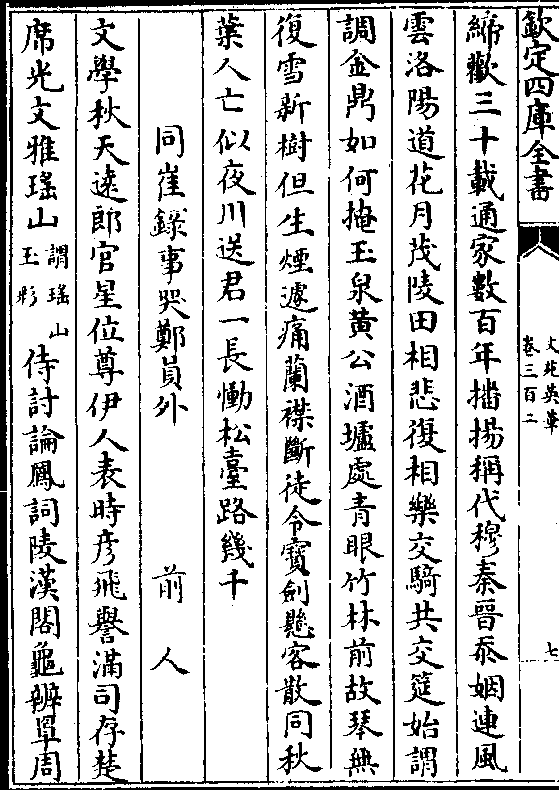 欽定四庫全書
文苑英華
卷三百二
七
締歡三十載通家數百年播揚稱代穆秦晉忝姻連風
雲洛陽道花月茂陵田相悲復相樂交騎共交筵始謂
調金鼎如何掩玉泉黃公酒壚處青眼竹林前故琴無
復雪新樹但生煙遽痛蘭襟斷徒令寶劍懸客散同秋
葉人亡似夜川送君一長慟松臺路幾千
同崔錄事哭鄭員外 前人
文學秋天遠郎官星位尊伊人表時彥飛譽滿司存楚
席光文雅瑤山謂瑤山玉彩侍討論鳳詞陵漢閣龜辨罩周